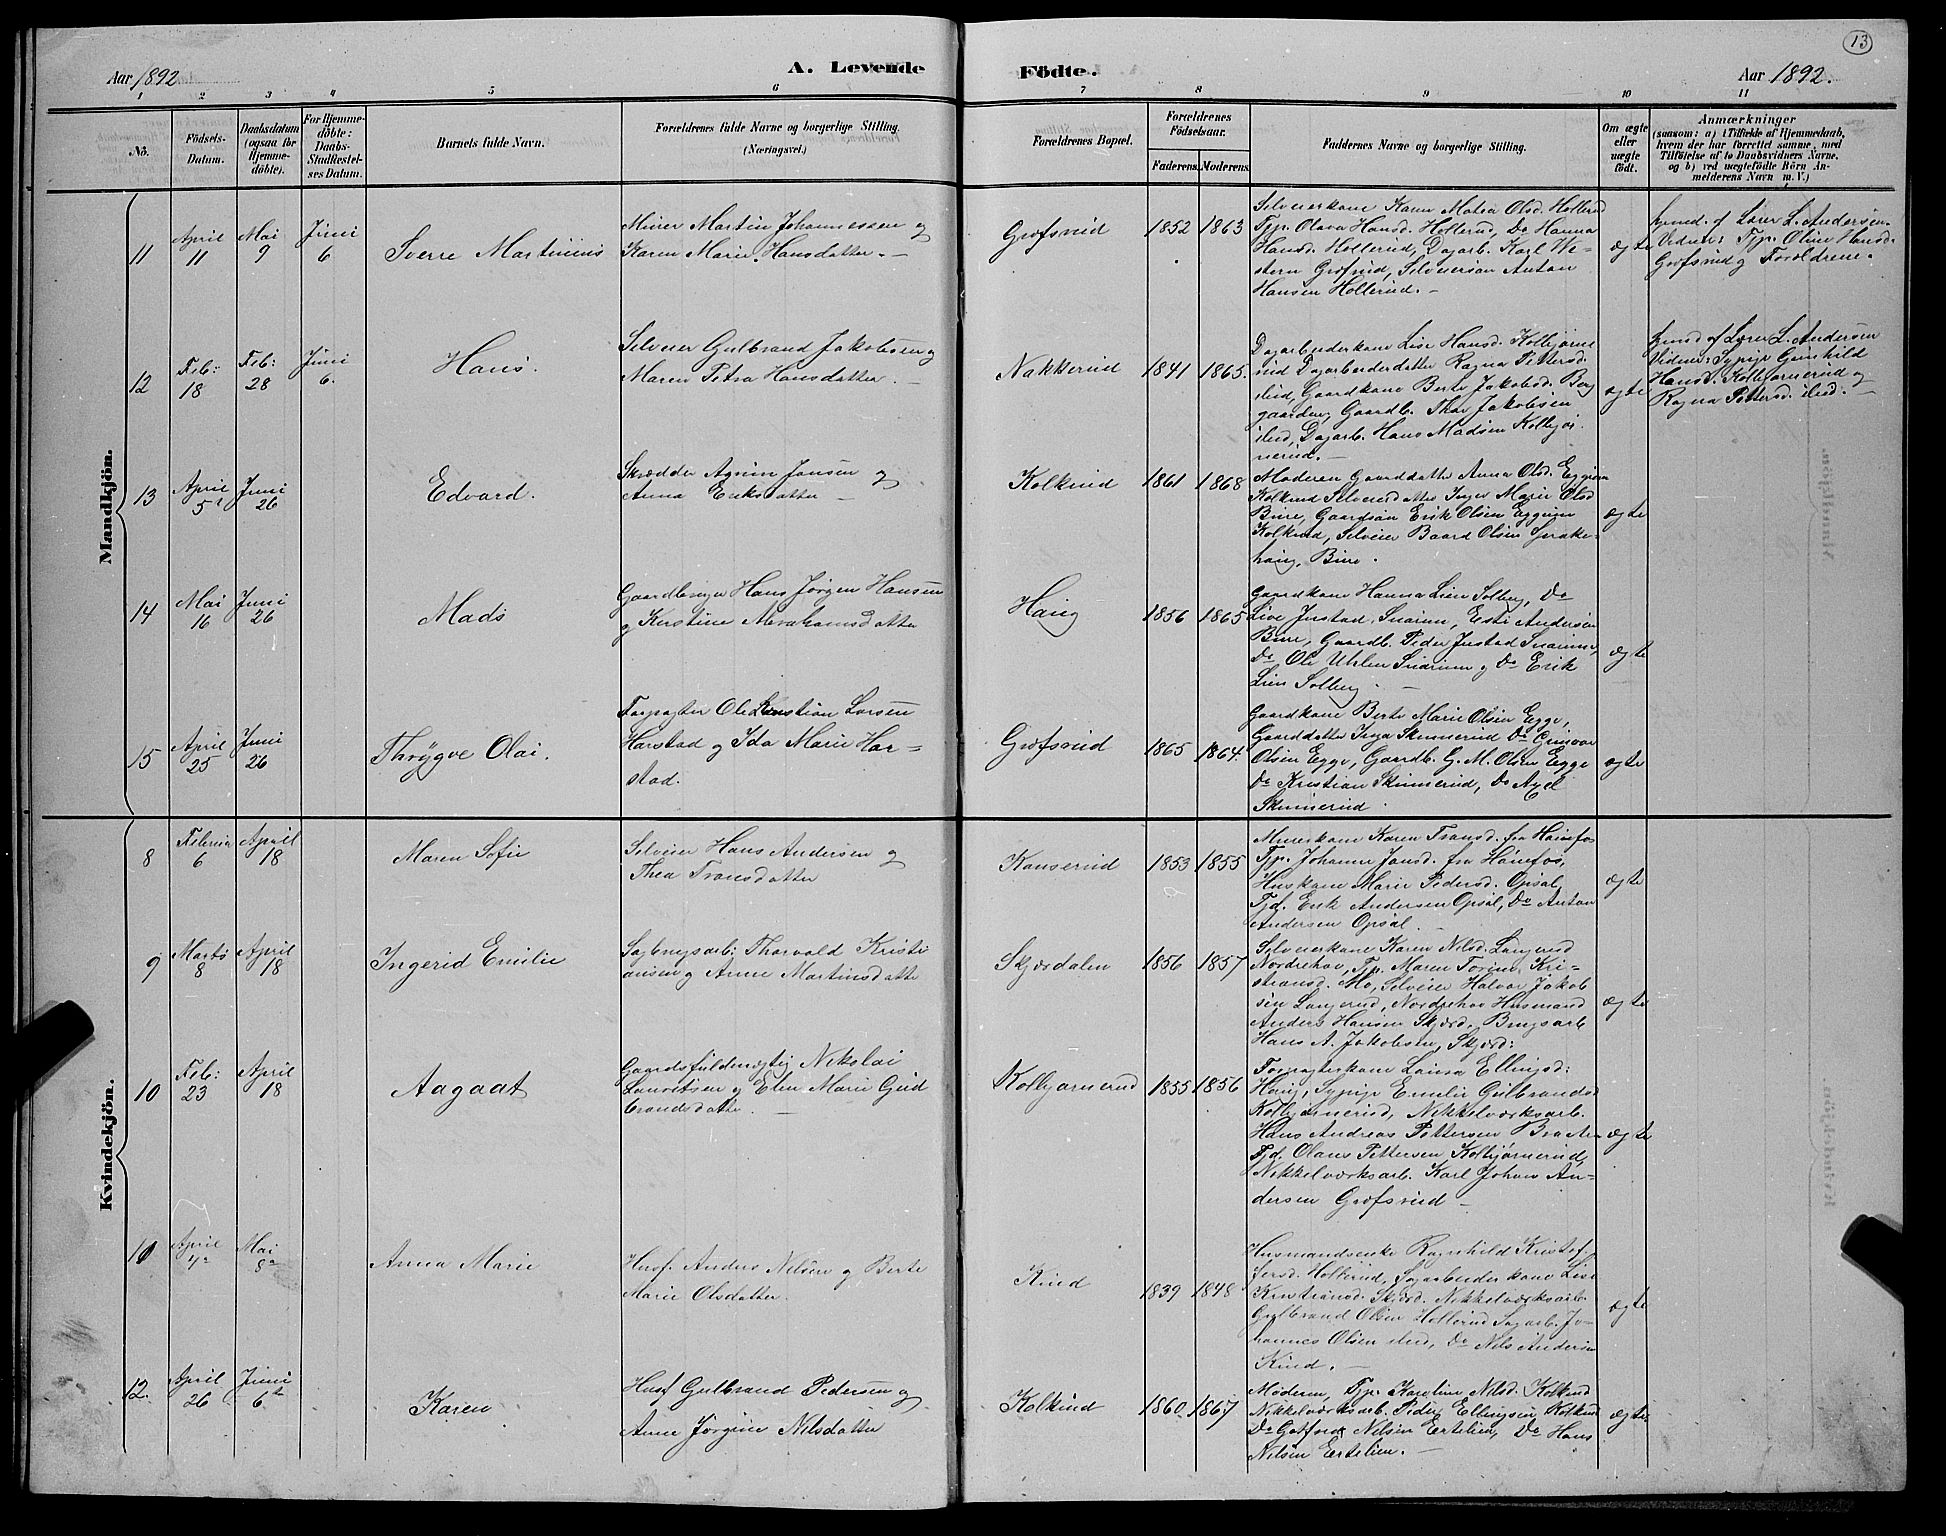 13
Aar 1892.
A. Levende
Födte.
Aar 1892.
1 2 3 4 5 6 7 8 9 10 11
No.
Födsels-
Datum.
Daabsdatum
(ogsaa for
Hjemme-
döbte).
For Hjemme-
döbte:
Daabs-
Stadfæstel-
ses Datum.
Barnets fulde Navn.
Forældrenes fulde Navne og borgerlige Stilling
(Næringsvei.)
Forældrenes Bopæl.
Forældrenes
Födselsaar.
Faderens.
Moderens.
Faddernes Navne og borgerlige Stilling.
Om ægte
eller
uægte
födt.
Anmærkninger
(saasom: a) i Tilfælde af Hjemmedaab,
hvem der har forrettet samme, med
Tilföielse af to Daabsvidners Navne,
og b) ved uægtefödte Börn An-
melderens Navn m. V.)
Mandkjön.
11
April
11
Mai
9
Juni
6
Sverre Martinius
Murer Martin Johannessen og
Karen Marie Hansdatter. —
Grøfsrud
1852 1863
Selveierkone Karen Matea Olsd. Hollerud
Tjp. Olava Hansd. Hollerud, Do Hanna
Hansd. Hollerud, Dagarb. Karl We-
stern Grøfsrud, Selveiersøn Anton
Hansen Hollerud. —
ægte
hjmd. af Lærer L. Andersen
Vidner: Tjp. Oline Hansd.
Grøfsrud og Forældrene.
12
Feb:
18
Feb:
28
Juni
6.
Hans.
Selveier Gulbrand Jakobsen og
Maren Petra Hansdatter. —
Nakkerud
1841 1865.
Dagarbeiderkone Lise Hansd. Kolbjørne
rud Dagarbeiderdatter Ragna Pettersd.
ibid, Gaardkone Berte Jakobsd. Berg
gaarden, Gaardb. Thor Jakobsen
ibid, Dagarb. Hans Madsen Kolbjør-
nerud. —
ægte
hjmd af Lærer L. Andersen
Vidner: Sypige Gunhild
Hansd. Kolbjørnerud og
Ragna Pettersd. ibid. —
13
April
5
Juni
26
Edvard.
Skrædder Agrim Jansen og
Anna Eriksdatter —
Kolkind
1861 1868
Moderen Gaarddatter Anna Olsd. Eggium
Kolkind Selveierdatter Inger Marie Olsd
Bure, Gaardsøn Erik Olsen Eggium
Kolkind, Selveier Baard Olsen Sprake-
haug, Bure.
ægte
14
Mai
16
Juni
26
Mads
Gaardbruger Hans Jørgen Hansen
og Kirstine Abrahamsdatter
Haug
1856 1865
Gaardkone Hanna Lien Solberg, Do
Live Jusstad, Snarum, Enke Andersen
Bure, Gaardb. Peder Jusstad Snarum,
Do Ole Uhlen Snarum og Do Erik
Lien Solberg. —
ægte
15
April
25
Juni
26
Thrygve Olai.
Forpagter Ole Kristian Larsen
Harstad og Ida Marie Har=
stad.
Grøfsrud
1865 1864.
Gaardkone Berte Marie Olsen Egge,
Gaarddatter Inga Skinnerud Do Gunvor
Olsen Egge, Gaardb. G. M. Olsen Egge
Do Kristian Skinnerud, Do Axel
Skinnerud.
ægte
Kvindekjön.
8
Februar
6
April
18
Maren Sofie
Selveier Hans Andersen og
Thea Fransdatter
Kanserud
1853 1855
Murerkone Karen Fransd. fra Hønefos
Tjp. Johanne Jansd. fra Hønefos,
Huskone Marie Pedersd. Opsal,
Tjd. Erik Andersen Opsal, Do Anton
Andersen Opsal. —
ægte
9
Marts
8
April
18
Ingerid Emilie
Sagbrugsarb: Thorvald Kristi
ansen og Anne Martinsdatter
Skjærdalen
1856 1857
Selveierkone Karen Nilsd. Langerud
Norderhov, Tjp. Maren Torine Kri-
stiansd. Mo, Selveier Halvor Jakob
sen Langerud, Norderhov Husmand
Anders Hansen Skjærd. Brugsarb
Hans A. Jakobsen, Skjærd:
ægte
10
Feb:
23
April
18
Aagaat
Gaardsfuldmægtig Nikolai
Lauritsen og Elen Marie Gud
brandsdatter. —
Kolbjørnerud
1855 1856
Forpagterkone Laura Ellingsd:
Haug, Sypige Emilie Gulbrandsd
Kolbjørnerud, Nikkelværksarb.
Hans Andreas Pettersen Braaten
Tjd. Olaus Pettersen Kolbjørnerud
Nikkelværksarb. Karl Johan An-
dersen Grøfsrud —
ægte
10
April
4
Mai
8
Anna Marie
Husf. Anders Nilsen og Berte
Marie Olsdatter.
Kind
1839 1848
Husmandsenke Ragnhild Kristof-
fersd. Hollerud, Sagarbeiderkone Lise
Kristiansd. Skjærd. Nikkelværksarb.
Gulbrand Olsen Hollerud Sagarb. Jo-
hannes Olsen ibid, Do Nils Andersen
Kind. —
ægte
12.
April
26
Juni
6
Karen
Husf Gulbrand Pedersen og
Anne Jørgine Nilsdatter
Kolkind
1860. 1867
Moderen, Tjp. Karoline Nilsd. Kolkind
Nikkelværksarb. Peder Ellingsen Kolkind
Do Gotfred Nilsen Ertelien, Do Hans
Nilsen Ertelien. —
ægte